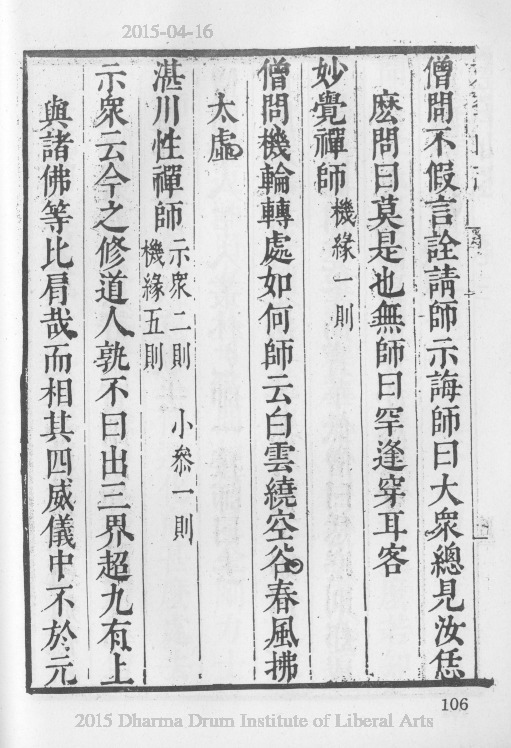 2015-04-16
僧問不假言詮請師示誨師曰大衆總見汝恁
麽問曰莫是也無師曰罕逢穿耳客
妙覺禪師 機緣一則
僧問機輪轉處如何師云白雲繞空谷春風拂
太虛
湛川性禪師 示衆二則 小叅一則
機緣五則
示衆云今之修道人孰不曰出三界超九有上
與諸佛等比肩哉而相其四威儀中不於元
106
2015 Dharma Drum Institute of Liberal Arts